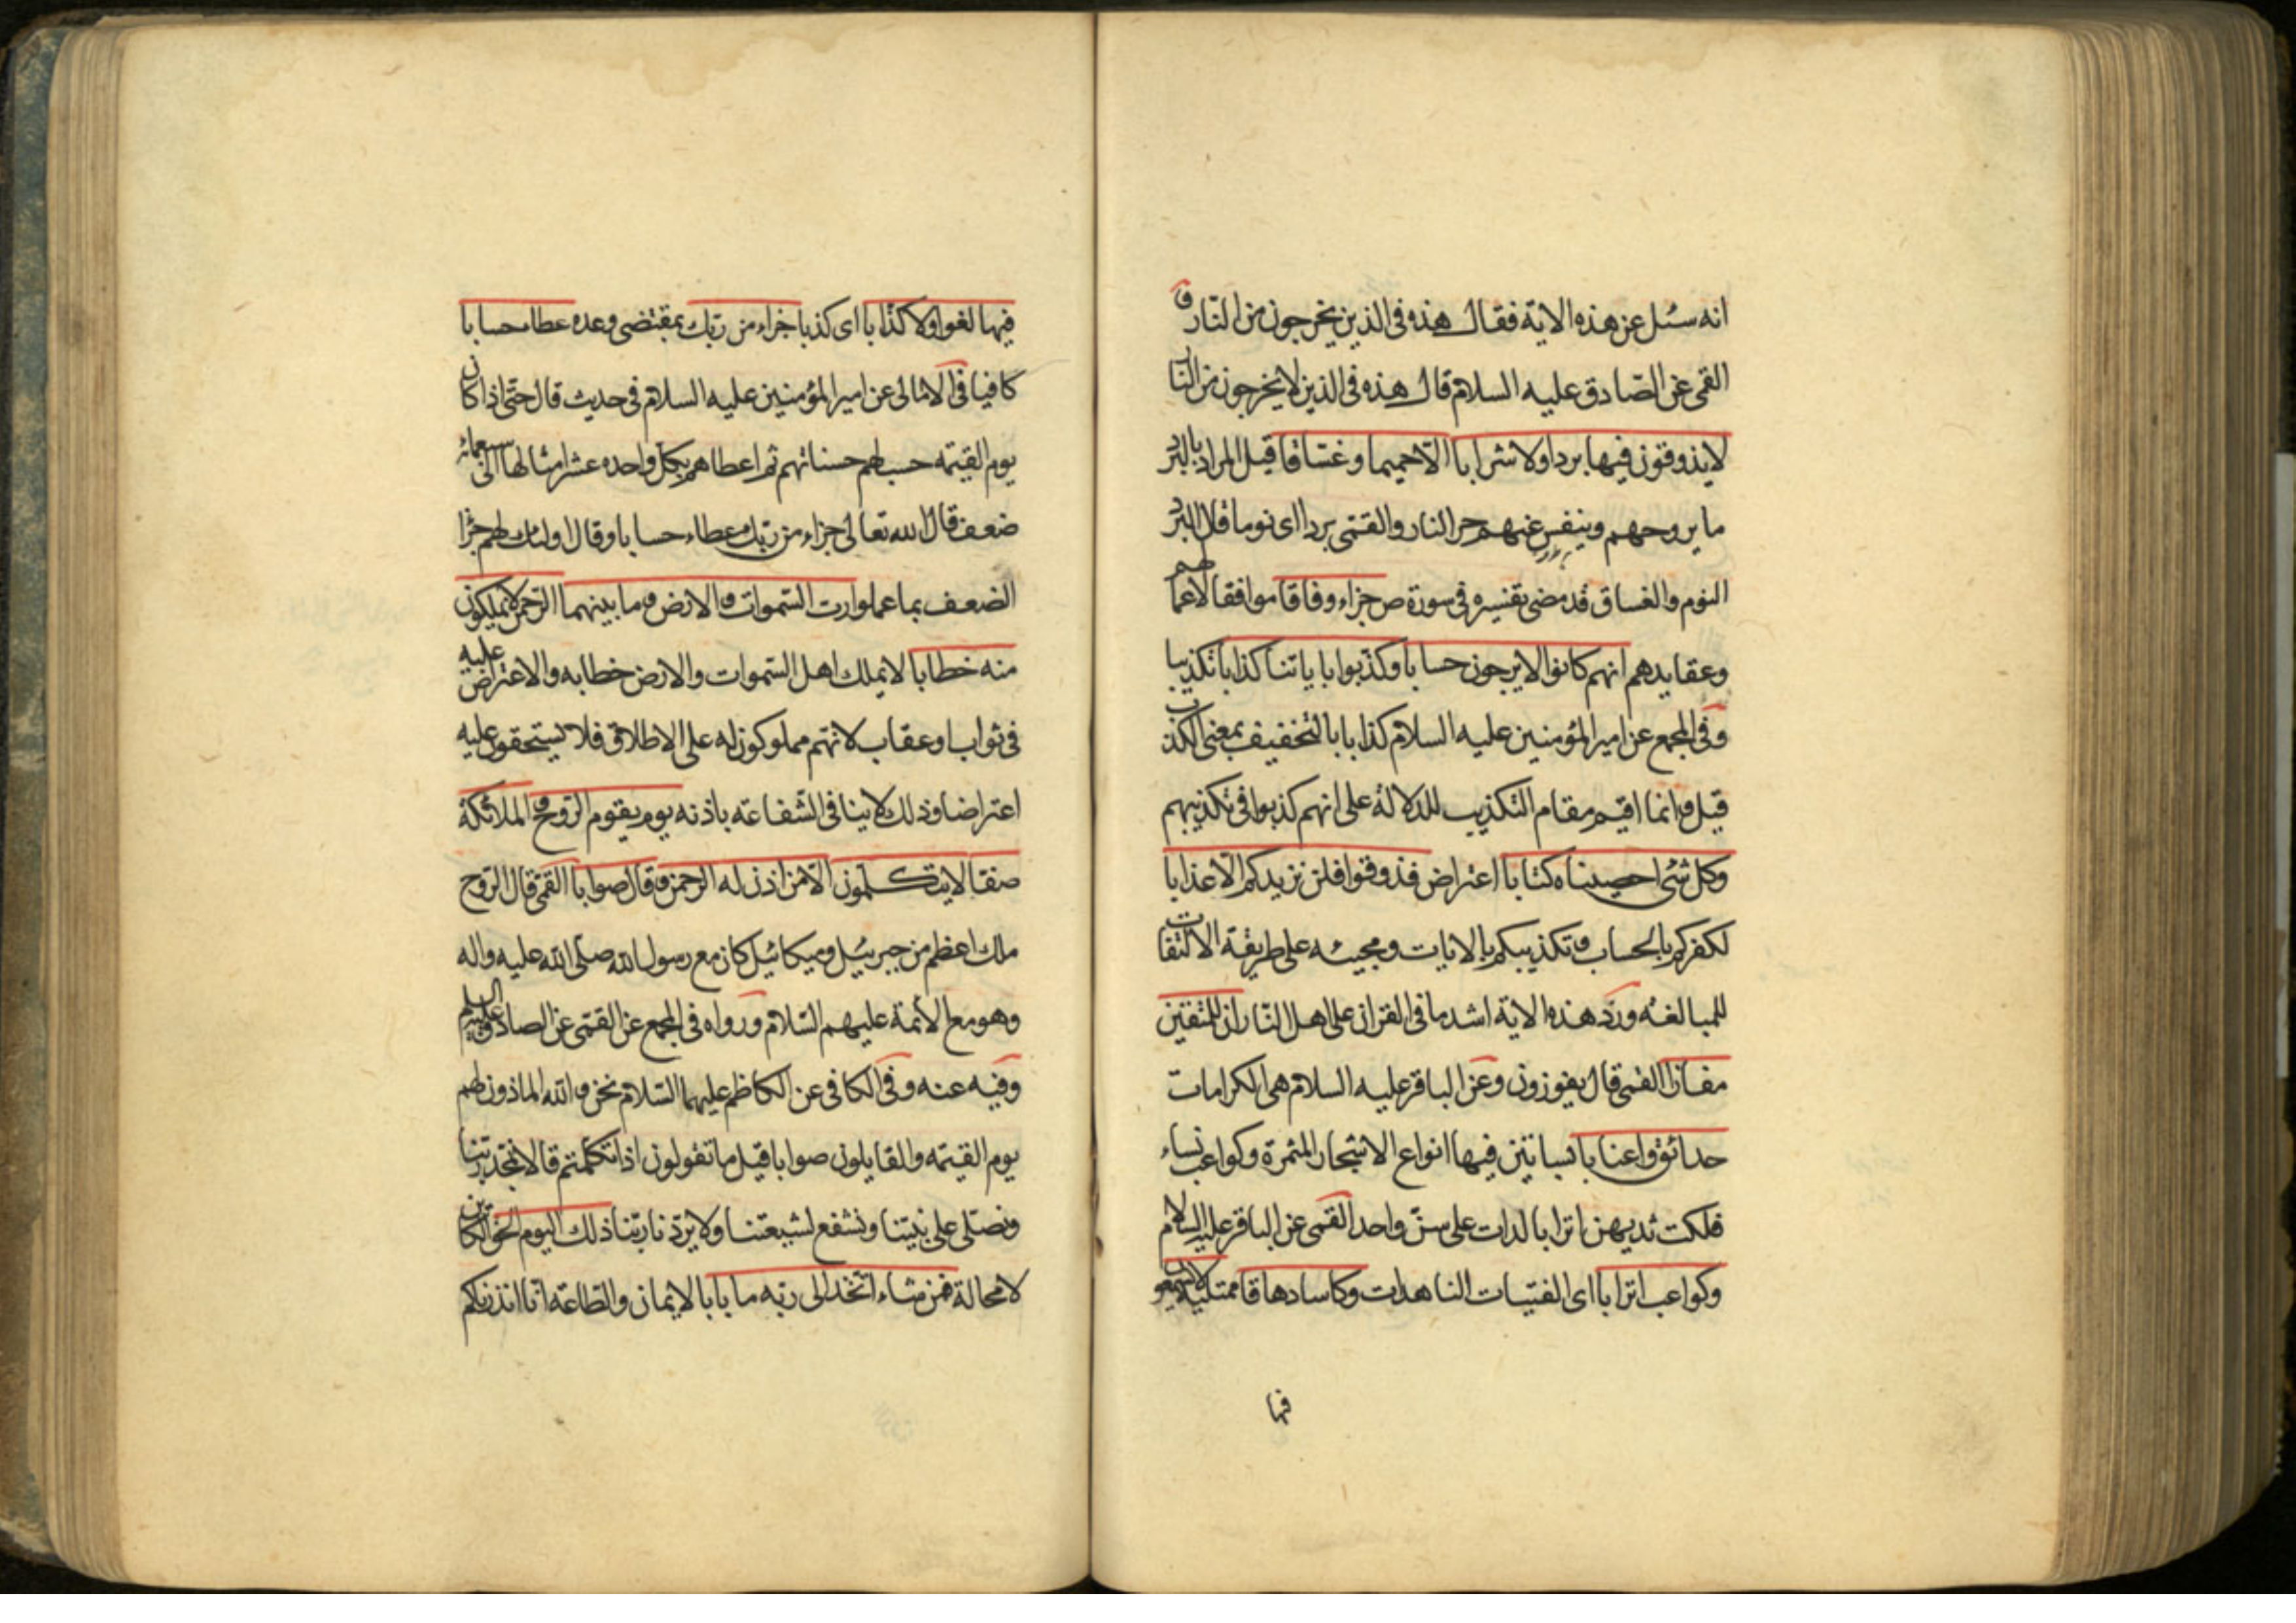 انه سئل عن هذه الاية فقال هذه فى الذين يخرجون من النار و
القمى عن الصادق عليه السلام قال هذه فى الذين لا يخرجون من النار
لا يذوقون فيها بردا ولا شرابا الا حميما وغساقا قيل المراد بالبرد
ما يروحهم وينفس عنهم حر النار والقمى بردا اى نوما قال البرد
النوم والغساق قد مضى تفسيره فى سورة ص جزاء وفاقا موافقا لاعمالهم
وعقايدهم انهم كانوا لا يرجون حسابا وكذبوا باياتنا كذابا تكذيبا
وفى المجمع عن امير المؤمنين عليه السلام كذابا بالتخفيف بمعنى الكذب
قيل وانما اقيم مقام التكذيب للدلالة على انهم كذبوا فى تكذيبهم
وكل شئ احصيناه كتابا اعتراض فذوقوا فلن نزيدكم الا عذابا
لكفركم بالحساب وتكذيبكم بالايات ومجيئه على طريقة الالتفات
للمبالغه ورد هذه الاية اشد ما فى القران على اهل النار ان للمتقين
مفازا القمى قال يفوزون وعن الباقر عليه السلام هى الكرامات
حدائق واعنابا بساتين فيها انواع الاشجار المثمرة وكواعب نساء
فلكت ثديهن اترابا لدات على سن واحد القمى عن الباقر عليه السلام
وكواعب اترابا اى الفتيات الناهدات وكاسا دهاقا ممتلية لا يسمعون
فيها
فيها لغوا ولا كذابا اى كذبا جزاء من ربك بمقتضى وعده عطاء حسابا
كافيا فى الامالى عن امير المؤمنين عليه السلام فى حديث قال حتى اذا كان
يوم القيمه حسب لهم حسناتهم ثم اعطاهم بكل واحده عشر امثالها الى سبعمائة
ضعف قال الله تعالى جزاء من ربك عطاء حسابا وقال اولئك لهم جزاء
الضعف بما عملوا رب السموات والارض وما بينهما الرحمن لا يملكون
منه خطابا لا يملك اهل السموات والارض خطابه والاعتراض عليه
فى ثواب او عقاب لانهم مملوكون له على الاطلاق فلا يستحقون عليه
اعتراضا وذلك لا ينافى الشفاعه باذنه يوم يقوم الروح و الملائكة
صفا لا يتكلمون الا من اذن له الرحمن وقال صوابا القمى قال الروح
ملك اعظم من جبرئيل وميكائيل كان مع رسول الله صلى الله عليه واله
وهو مع الأئمة عليهم السلام ورواه فى المجمع عن القمى عن الصادق عليه السلم
وفيه عنه وفى الكافى عن الكاظم عليهما السلام نحن والله الماذون لهم
يوم القيمه والقايلون صوابا قيل ما تقولون اذا تكلمتم قال نمجد ربنا
ونصلى على نبينا ونشفع لشيعتنا ولا يردنا ربنا ذلك اليوم الحق الكاين
لا محالة فمن شاء اتخذ الى ربه مابا بالايمان والطاعه انا انذرناكم